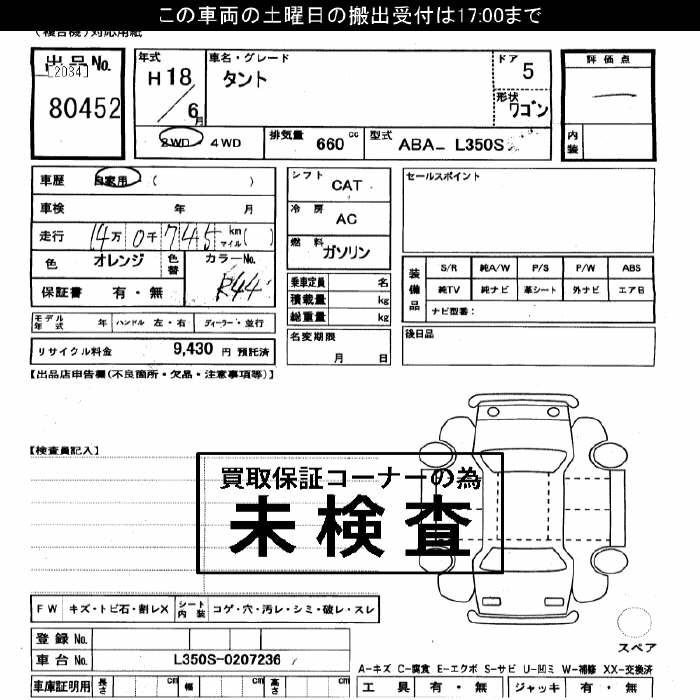 この車両の土曜日の搬出受付は17:00まで
(複合機)対応用紙
出品No.
[2034]
80452
年式
H18/6月
車名・グレード
タント
ドア
5
形状
ワゴン
評価点
内装
2WD・4WD
排気量 660cc
型式 ABA- L350S
車歴 自家用・( )
車検 年 月
走行 14万0千745km マイル( )
色 オレンジ 色替 カラーNo. R44
保証書 有・無
モデル年式 年 ハンドル 左・右 ディーラー・並行
リサイクル料金 9,430 円 預託済
シフト CAT
冷房 AC
燃料 ガソリン
乗車定員 名
積載量 kg
総重量 kg
名変期限
月 日
セールスポイント
装備品
S/R 純A/W P/S P/W ABS
純TV 純ナビ 革シート 外ナビ エアB
ナビ型番:
後日品
【出品店申告欄(不良箇所・欠品・注意事項等)】
【検査員記入】
買取保証コーナーの為
未検査
FW キズ・トビ石・割レX シート内装 コゲ・穴・汚レ・シミ・破レ・スレ
登録No.
車台No. L350S-0207236
車庫証明用 長さ cm 幅 cm 高さ cm
スペア
A-キズ C-腐食 E-エクボ S-サビ U-凹ミ W-補修 XX-交換済
工具 有・無 ジャッキ 有・無